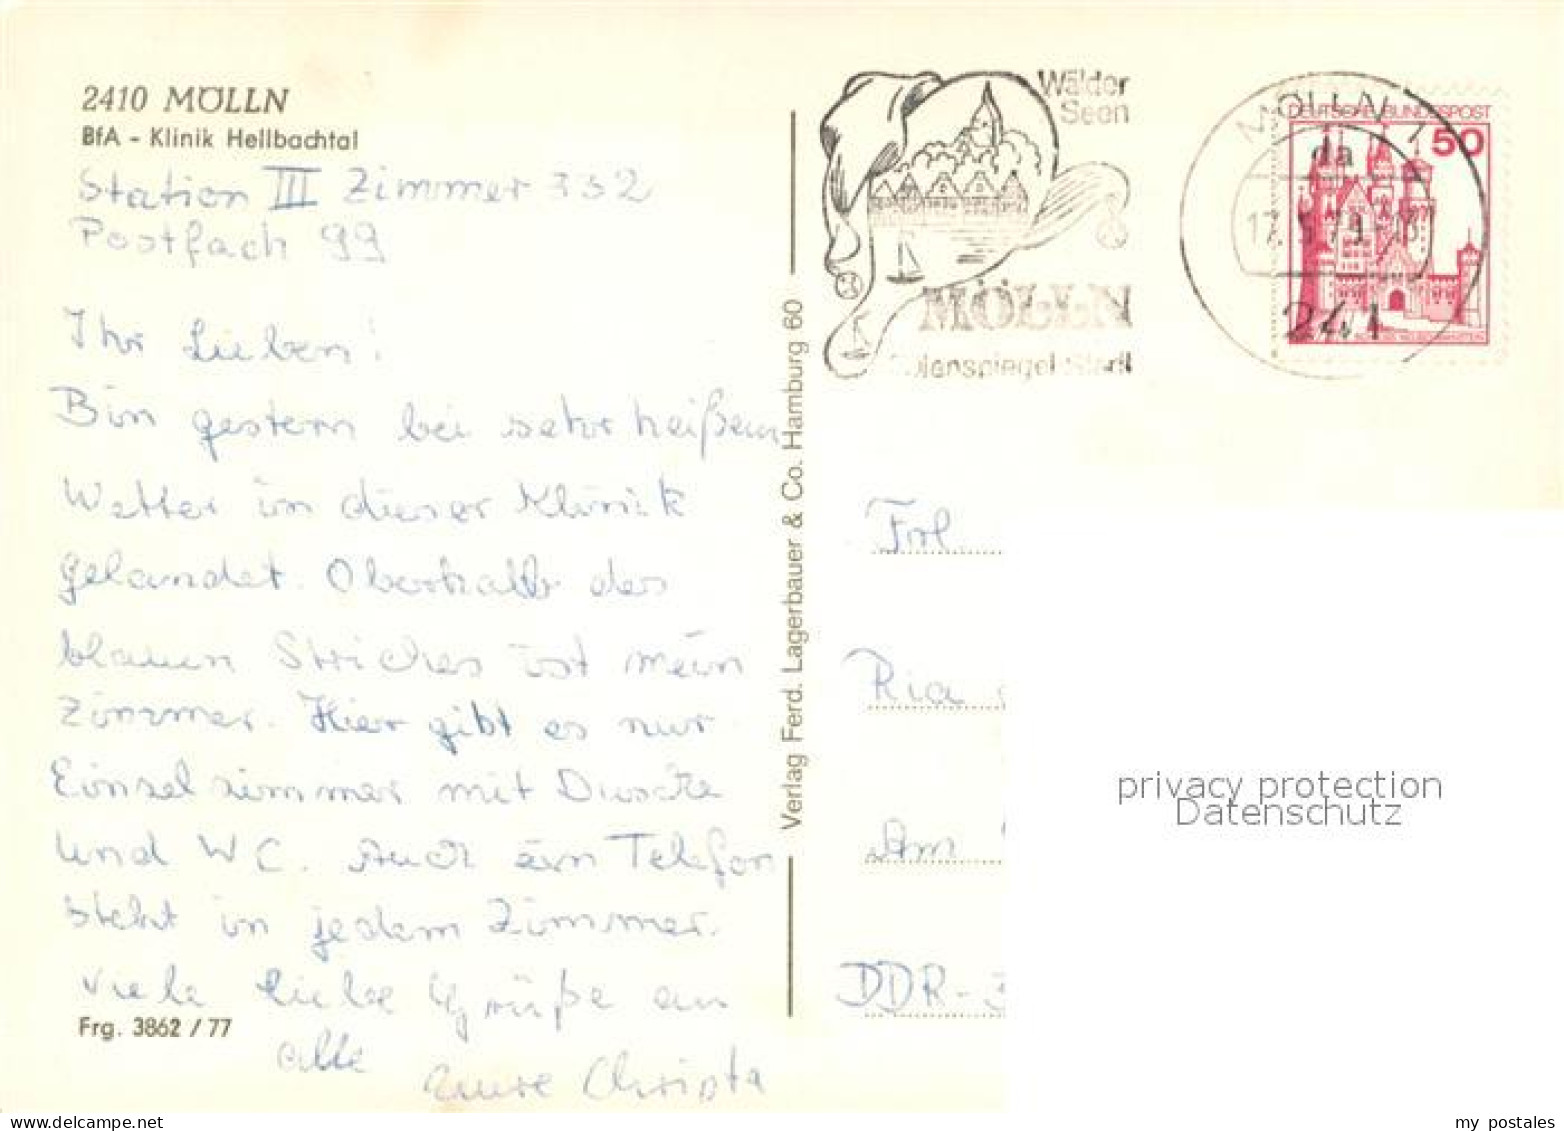 2410 MÖLLN
BfA - Klinik Hellbachtal
Station III Zimmer 332
Postfach 99
Ihr Lieben!
Bin gestern bei sehr heißem
Wetter in dieser Klinik
gelandet. Oberhalb des
blauen Striches ist mein
Zimmer. Hier gibt es nur
Einzelzimmer mit Dusche
und WC. Auch ein Telefon
steht in jedem Zimmer.
Viele liebe Grüße an
alle
Eure Christa
Frg. 3862 / 77
Verlag Ferd. Lagerbauer & Co. Hamburg 60
Wälder
Seen
MÖLLN
MÖLLN
da
241
DEUTSCHE BUNDESPOST
50
Frl.
Ria
Am
DDR-
privacy protection
Datenschutz
my postales